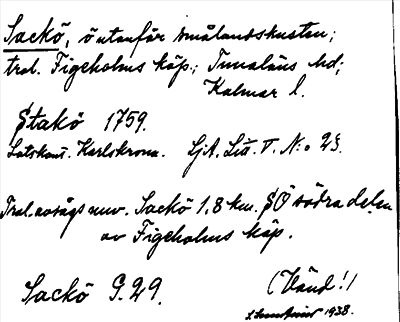 Sackö, ö utanför smålandskusten;
tral. Figeholms köp.; Tunaläns hd;
Kalmar l.
Stakö 1759.
Lotskont. Karlskrona. LjA. Lit. V. N:o 23.
Tral. avsågs nuv. Sackö 1,8 km. SÖ södra delen
av Figeholms köp.
Sackö G. 29.
(Vänd!)
1938.